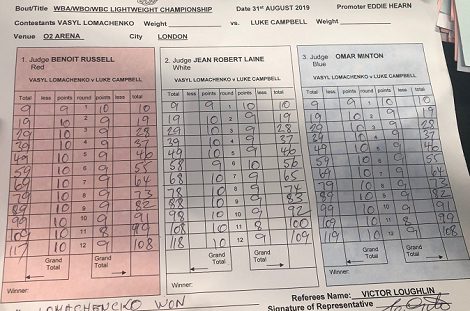 Bout/Title WBA/WBO/WBC LIGHTWEIGHT CHAMPIONSHIP Date 31ST AUGUST 2019 Promoter EDDIE HEARN
Contestants VASYL LOMACHENKO Weight vs. LUKE CAMPBELL Weight
Venue O2 ARENA City LONDON
1. Judge BENOIT RUSSELL
Red
VASYL LOMACHENKO v LUKE CAMPBELL
Total less points round points less Total
9 9 1 10 10
19 10 2 9 19
29 10 3 9 28
39 10 4 9 37
49 10 5 9 46
59 10 6 9 55
69 10 7 9 64
79 10 8 9 73
89 10 9 9 82
99 10 10 9 91
109 10 11 8 99
119 10 12 9 108
Grand Total Grand Total
Winner:
2. Judge JEAN ROBERT LAINE
White
VASYL LOMACHENKO v LUKE CAMPBELL
Total less points round points less Total
9 9 1 10 10
19 10 2 9 19
29 10 3 9 28
39 10 4 9 37
49 10 5 9 46
58 9 6 10 56
68 10 7 9 65
78 10 8 9 74
88 10 9 9 83
98 10 10 9 92
108 10 11 8 100
118 10 12 9 109
Grand Total Grand Total
Winner:
3. Judge OMAR MINTON
Blue
VASYL LOMACHENKO v LUKE CAMPBELL
Total less points round points less Total
9 9 1 10 10
19 10 2 9 19
29 10 3 9 28
39 10 4 9 37
49 10 5 9 46
59 10 6 9 55
69 10 7 9 64
79 10 8 9 73
89 10 9 9 82
99 10 10 9 91
109 10 11 8 99
119 10 12 9 108
Grand Total Grand Total
Winner:
LOMACHENCKO WON
Referees Name: VICTOR LOUGHLIN
Signature of Representative